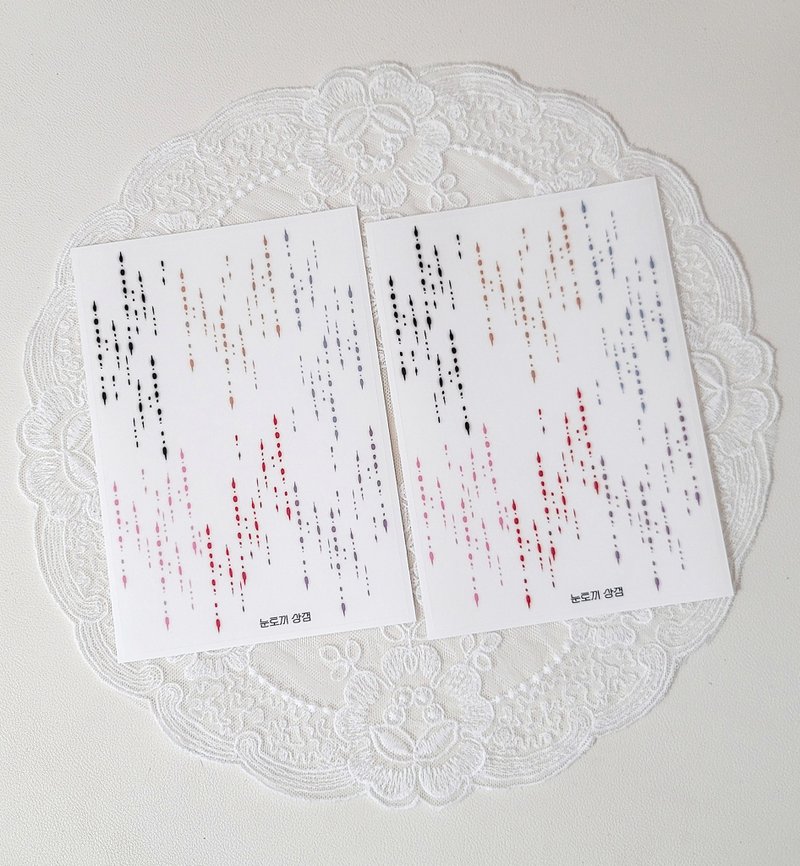 눈토끼 상점
눈토끼 상점